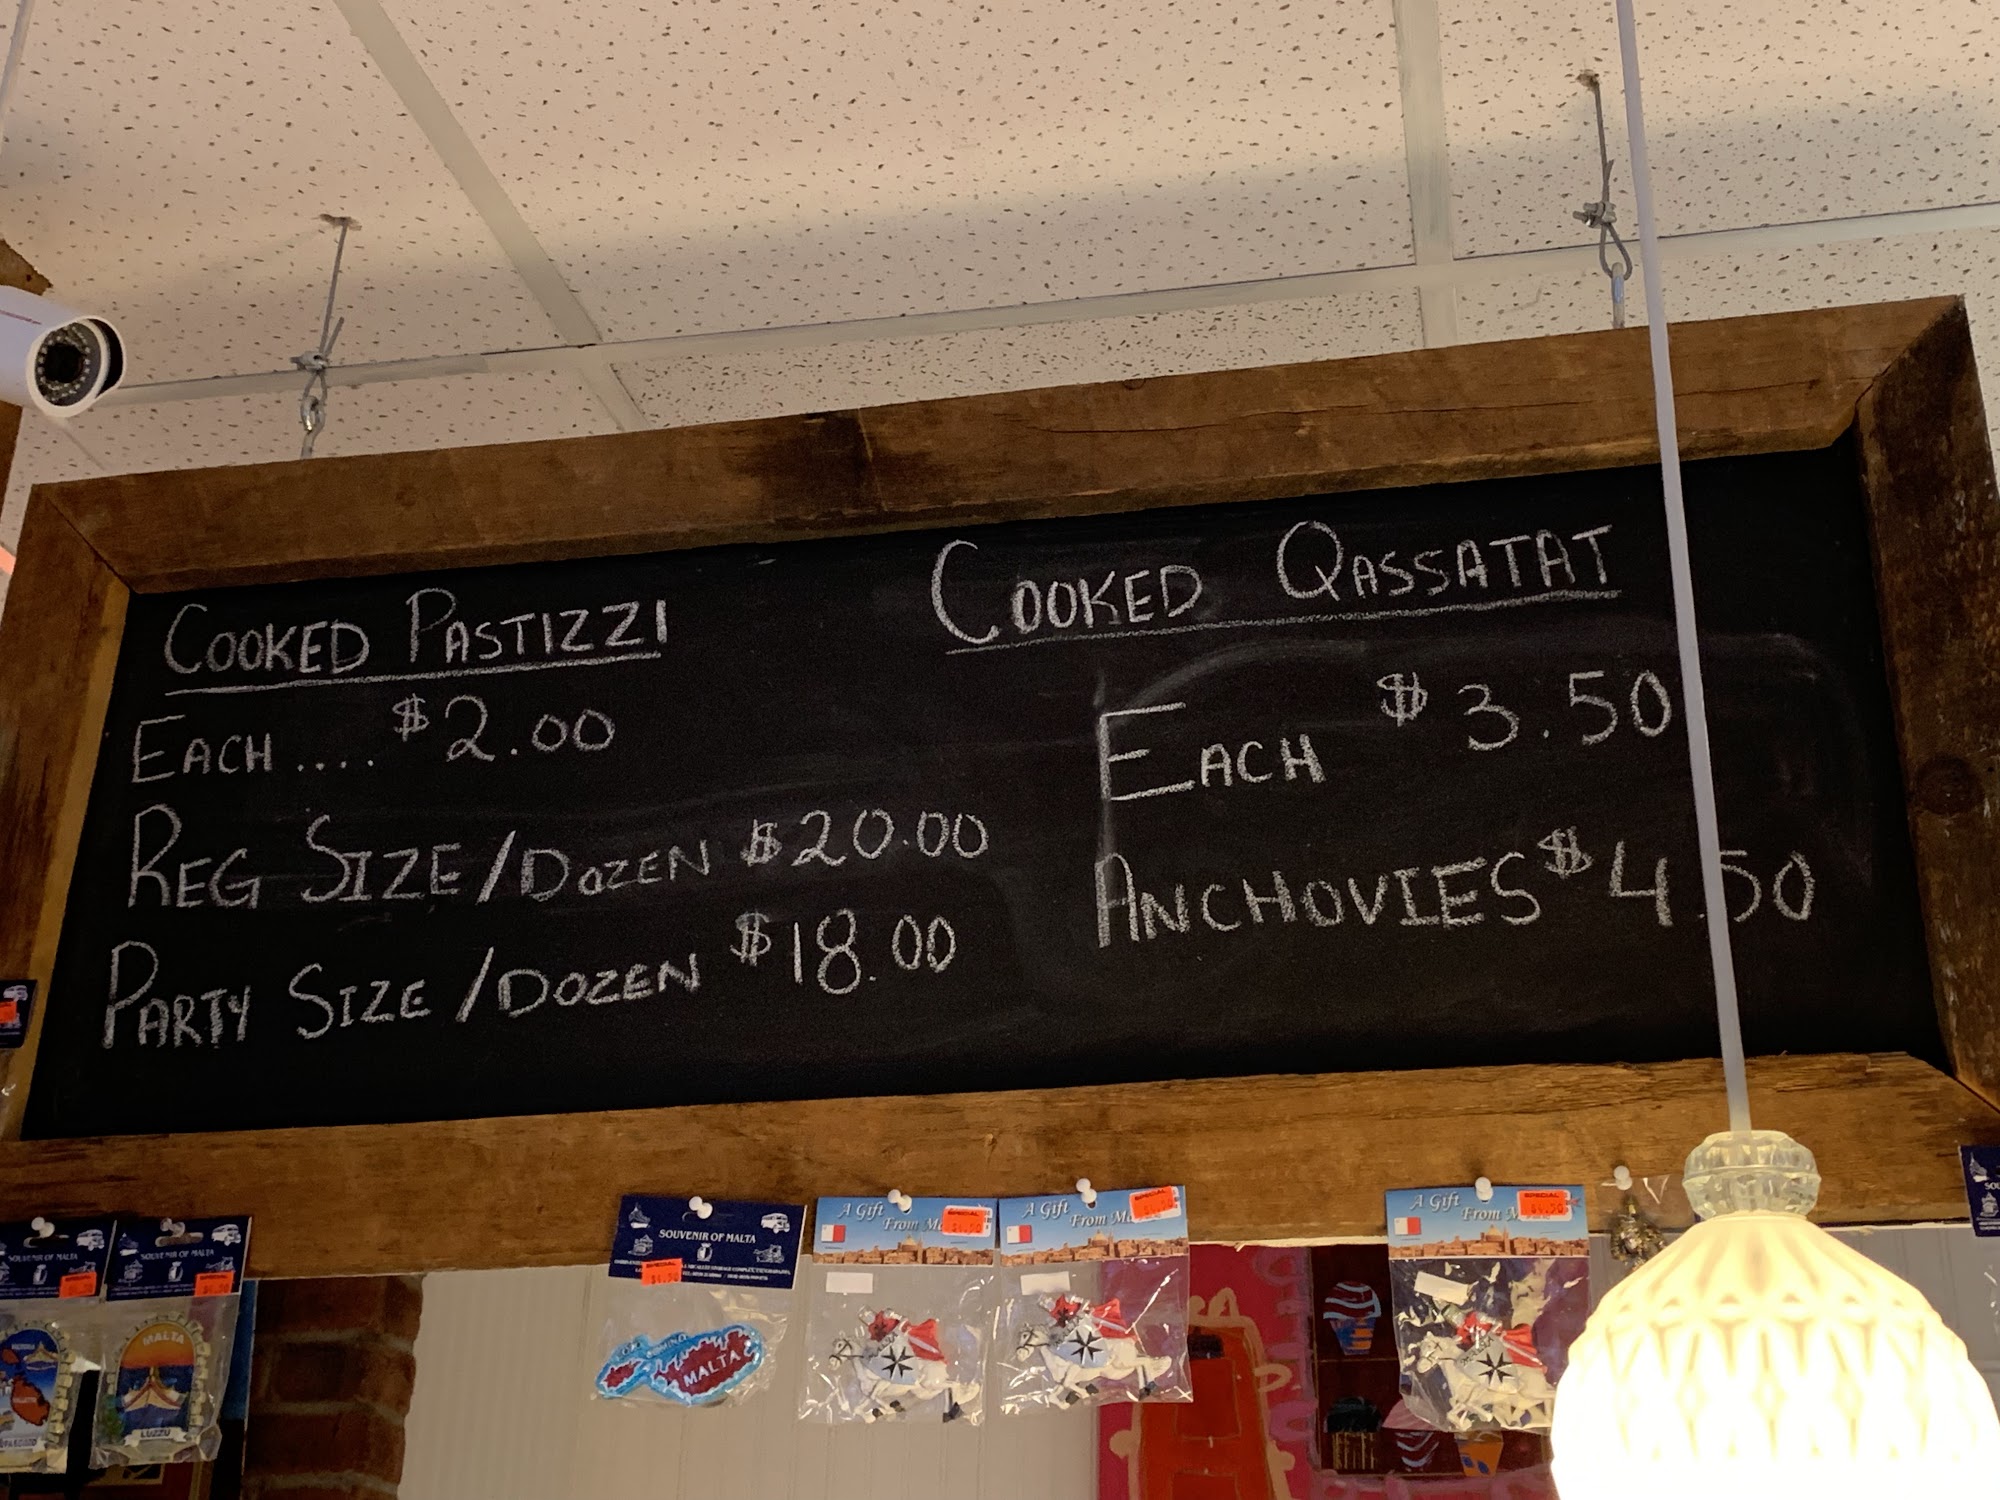 COOKED PASTIZZI
EACH .... $2.00
REG SIZE/DOZEN $20.00
PARTY SIZE/DOZEN $18.00
COOKED QASSATAT
EACH $3.50
ANCHOVIES $4.50
SOUVENIR OF MALTA
SPECIAL
SOUVENIR OF MALTA
SPECIAL
MALTA
LUZZU
SOUVENIR OF MALTA
SPECIAL
MALTA
A Gift
From
SPECIAL
A Gift
From
SPECIAL
A Gift
From
SPECIAL